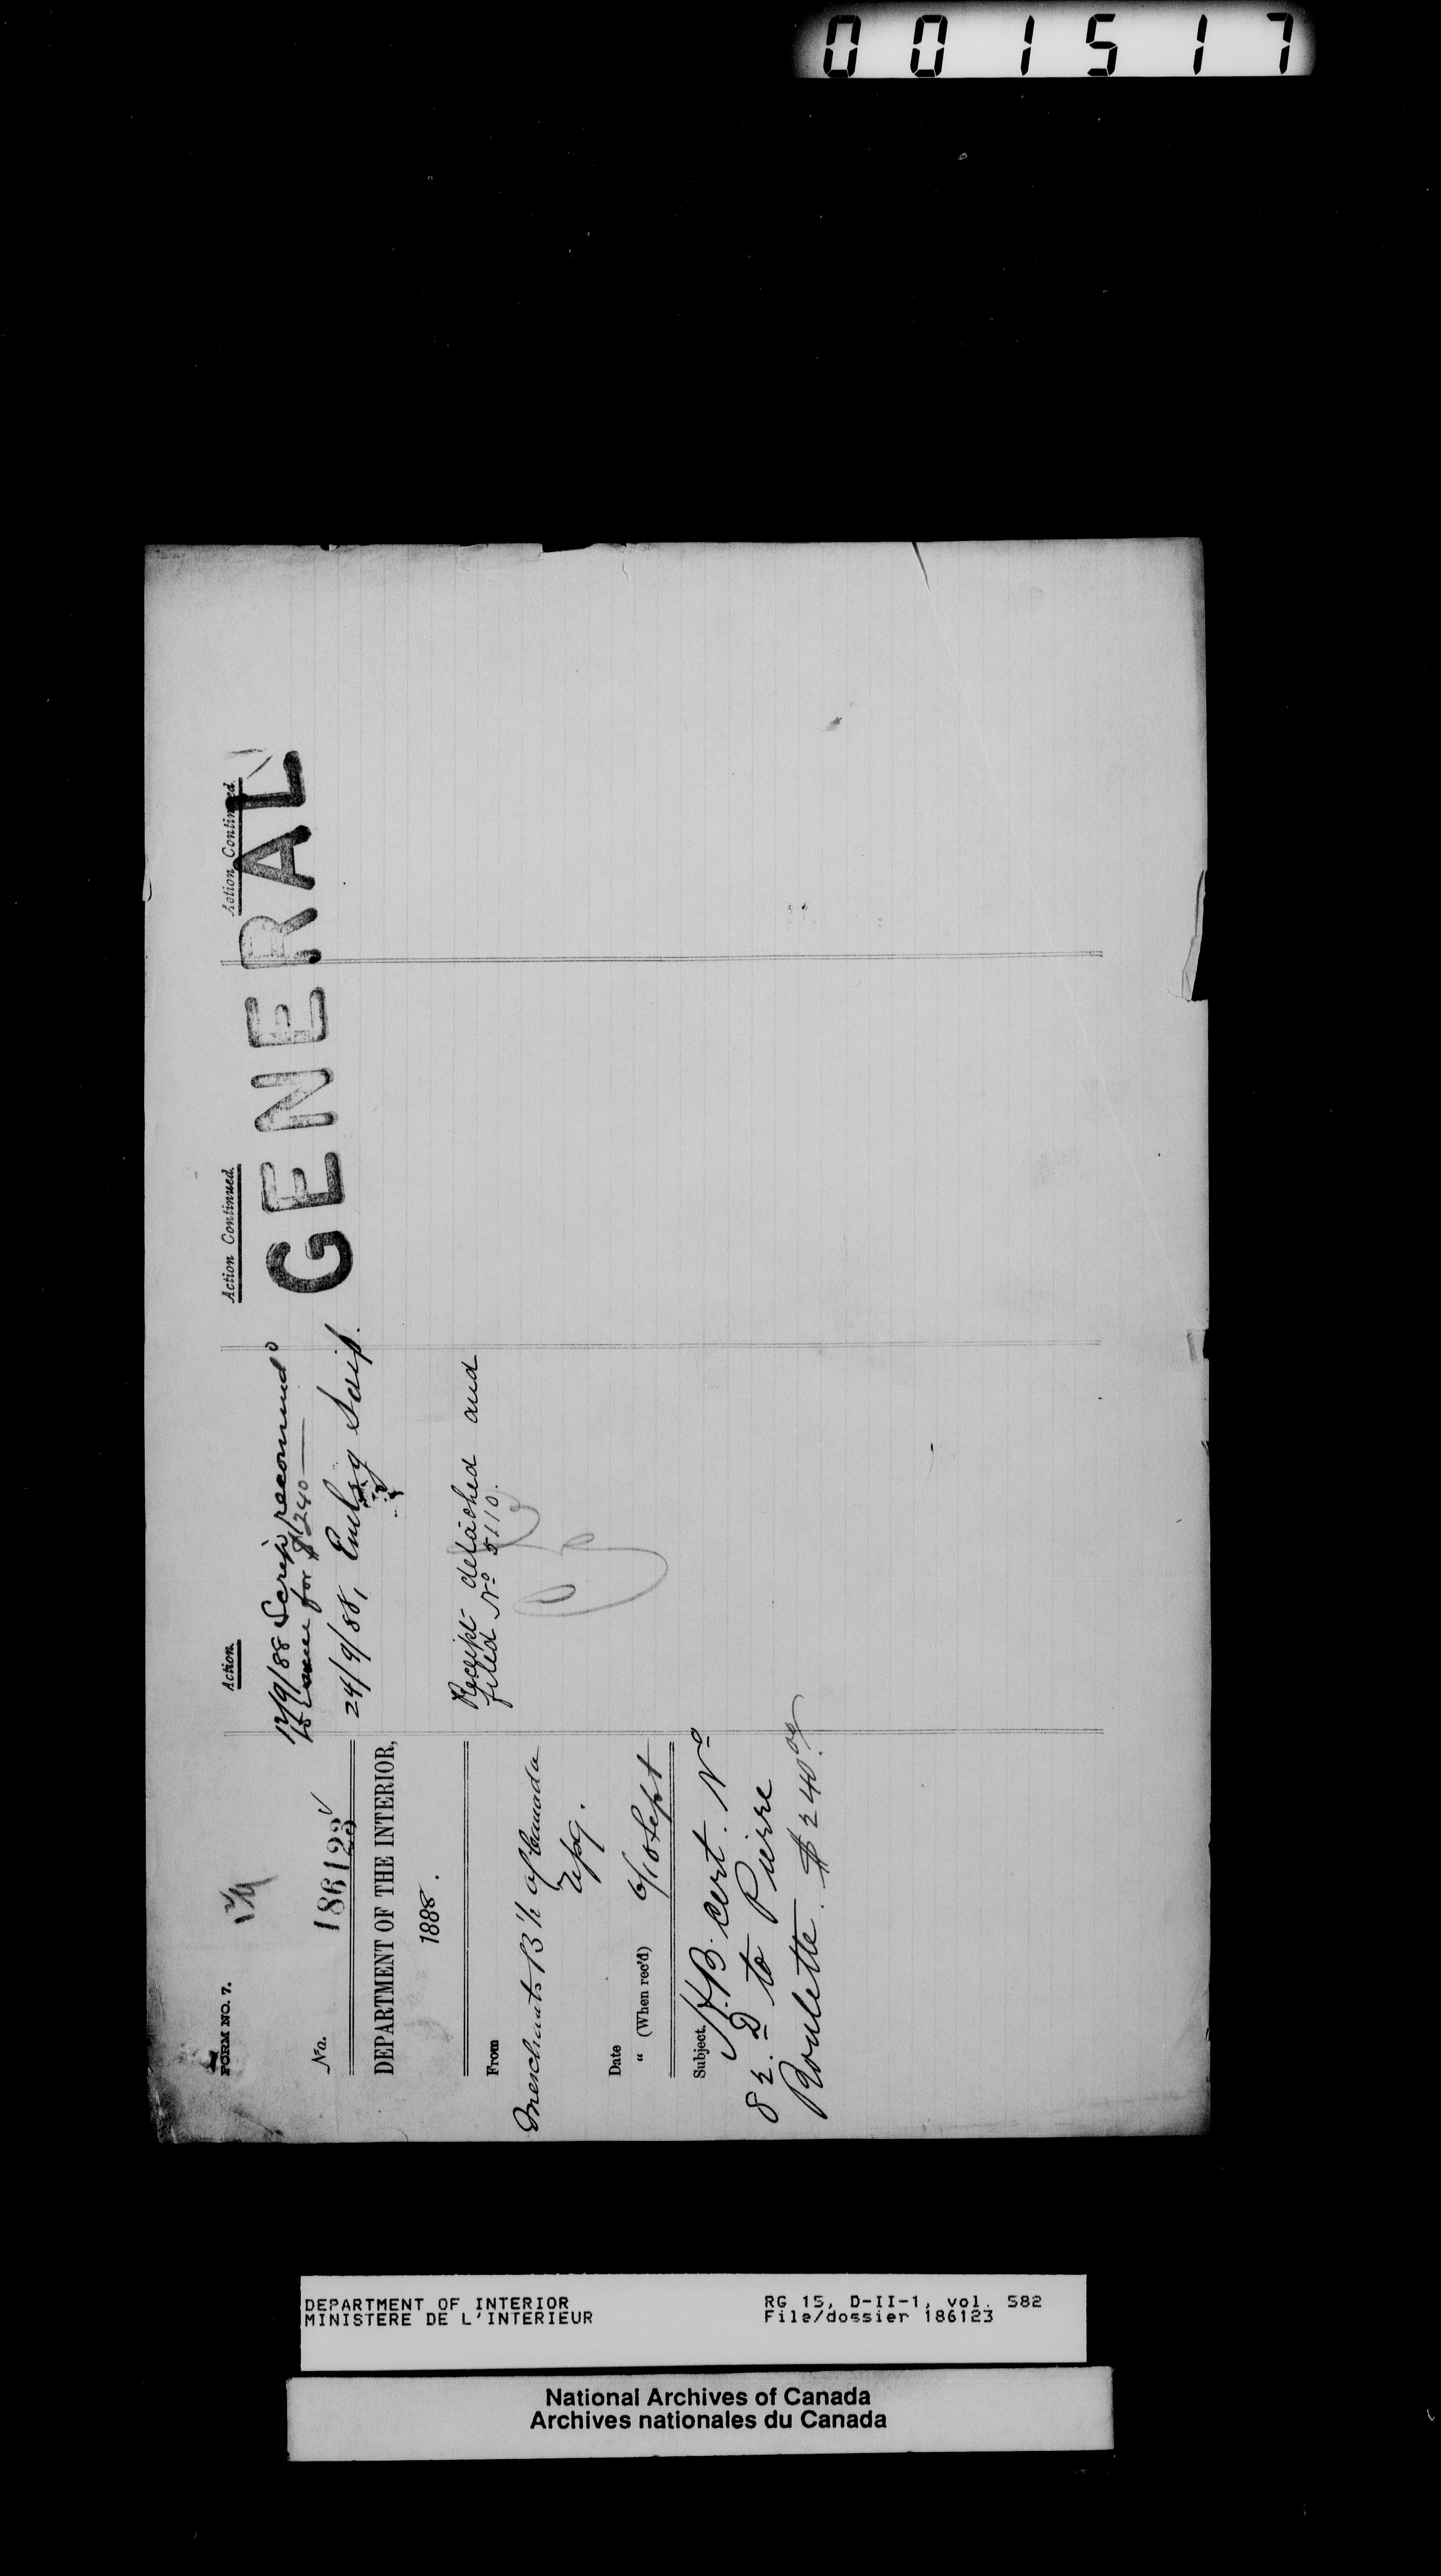 001517
FORM NO. 7.
12/9
No. 186123
DEPARTMENT OF THE INTERIOR,
1888.
From
Merchants Bk of Canada
Wpg.
Date
" (When rec'd) 6/10 Sept
Subject. H.B. cert. No
82. D to Pierre
Roulette. $240.00
Action.
12/9/88 Scrip recommend
to issue for $240
24/9/88, Enclsg Scrip.
Receipt detached and
filed No 5110.
Action Continued.
Action Continued.
GENERAL
DEPARTMENT OF INTERIOR
MINISTERE DE L'INTERIEUR
RG 15, D-II-1, vol. 582
File/dossier 186123
National Archives of Canada
Archives nationales du Canada